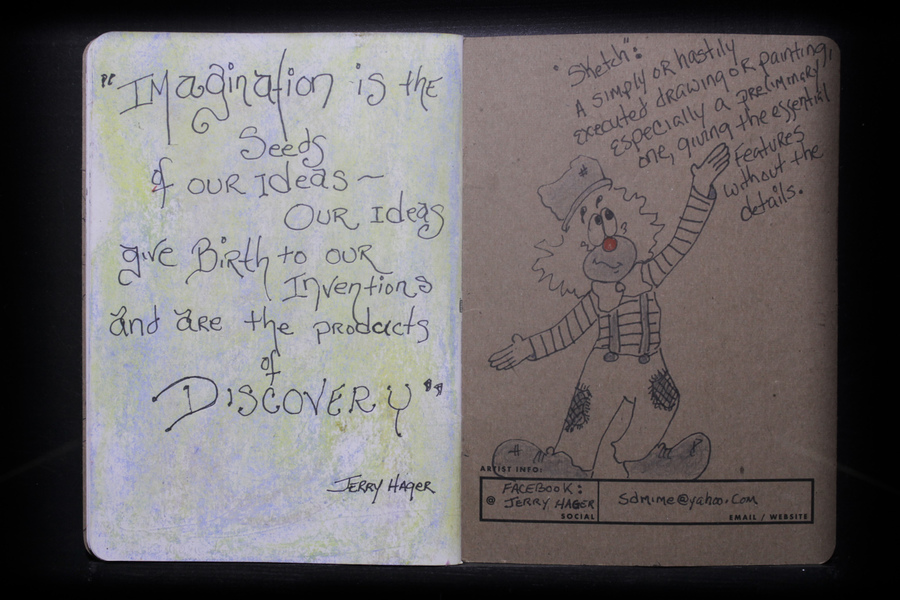 "Imagination is the
Seeds
of our Ideas ~
Our Ideas
give Birth to our
Inventions
and are the products
of
Discovery"
Jerry Hager
"Sketch":
A simply or hastily
executed drawing or painting,
especially a preliminary
one, giving the essential
features
without the
details.
ARTIST INFO:
@ FACEBOOK:
JERRY HAGER
SOCIAL
sdmime@yahoo.com
EMAIL / WEBSITE